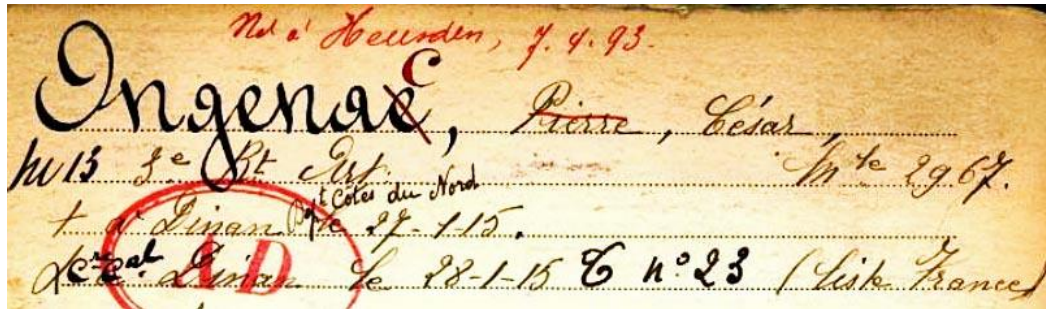 Né à Heusden, 7.4.93.
Ongenae, Pierre, César,
M 13 3e Rt Art. Mle 2967.
+ à Dinan Dpt Cotes du Nord le 27-1-15.
Cre cal Dinan le 28-1-15 T n° 23 (liste France)
AD